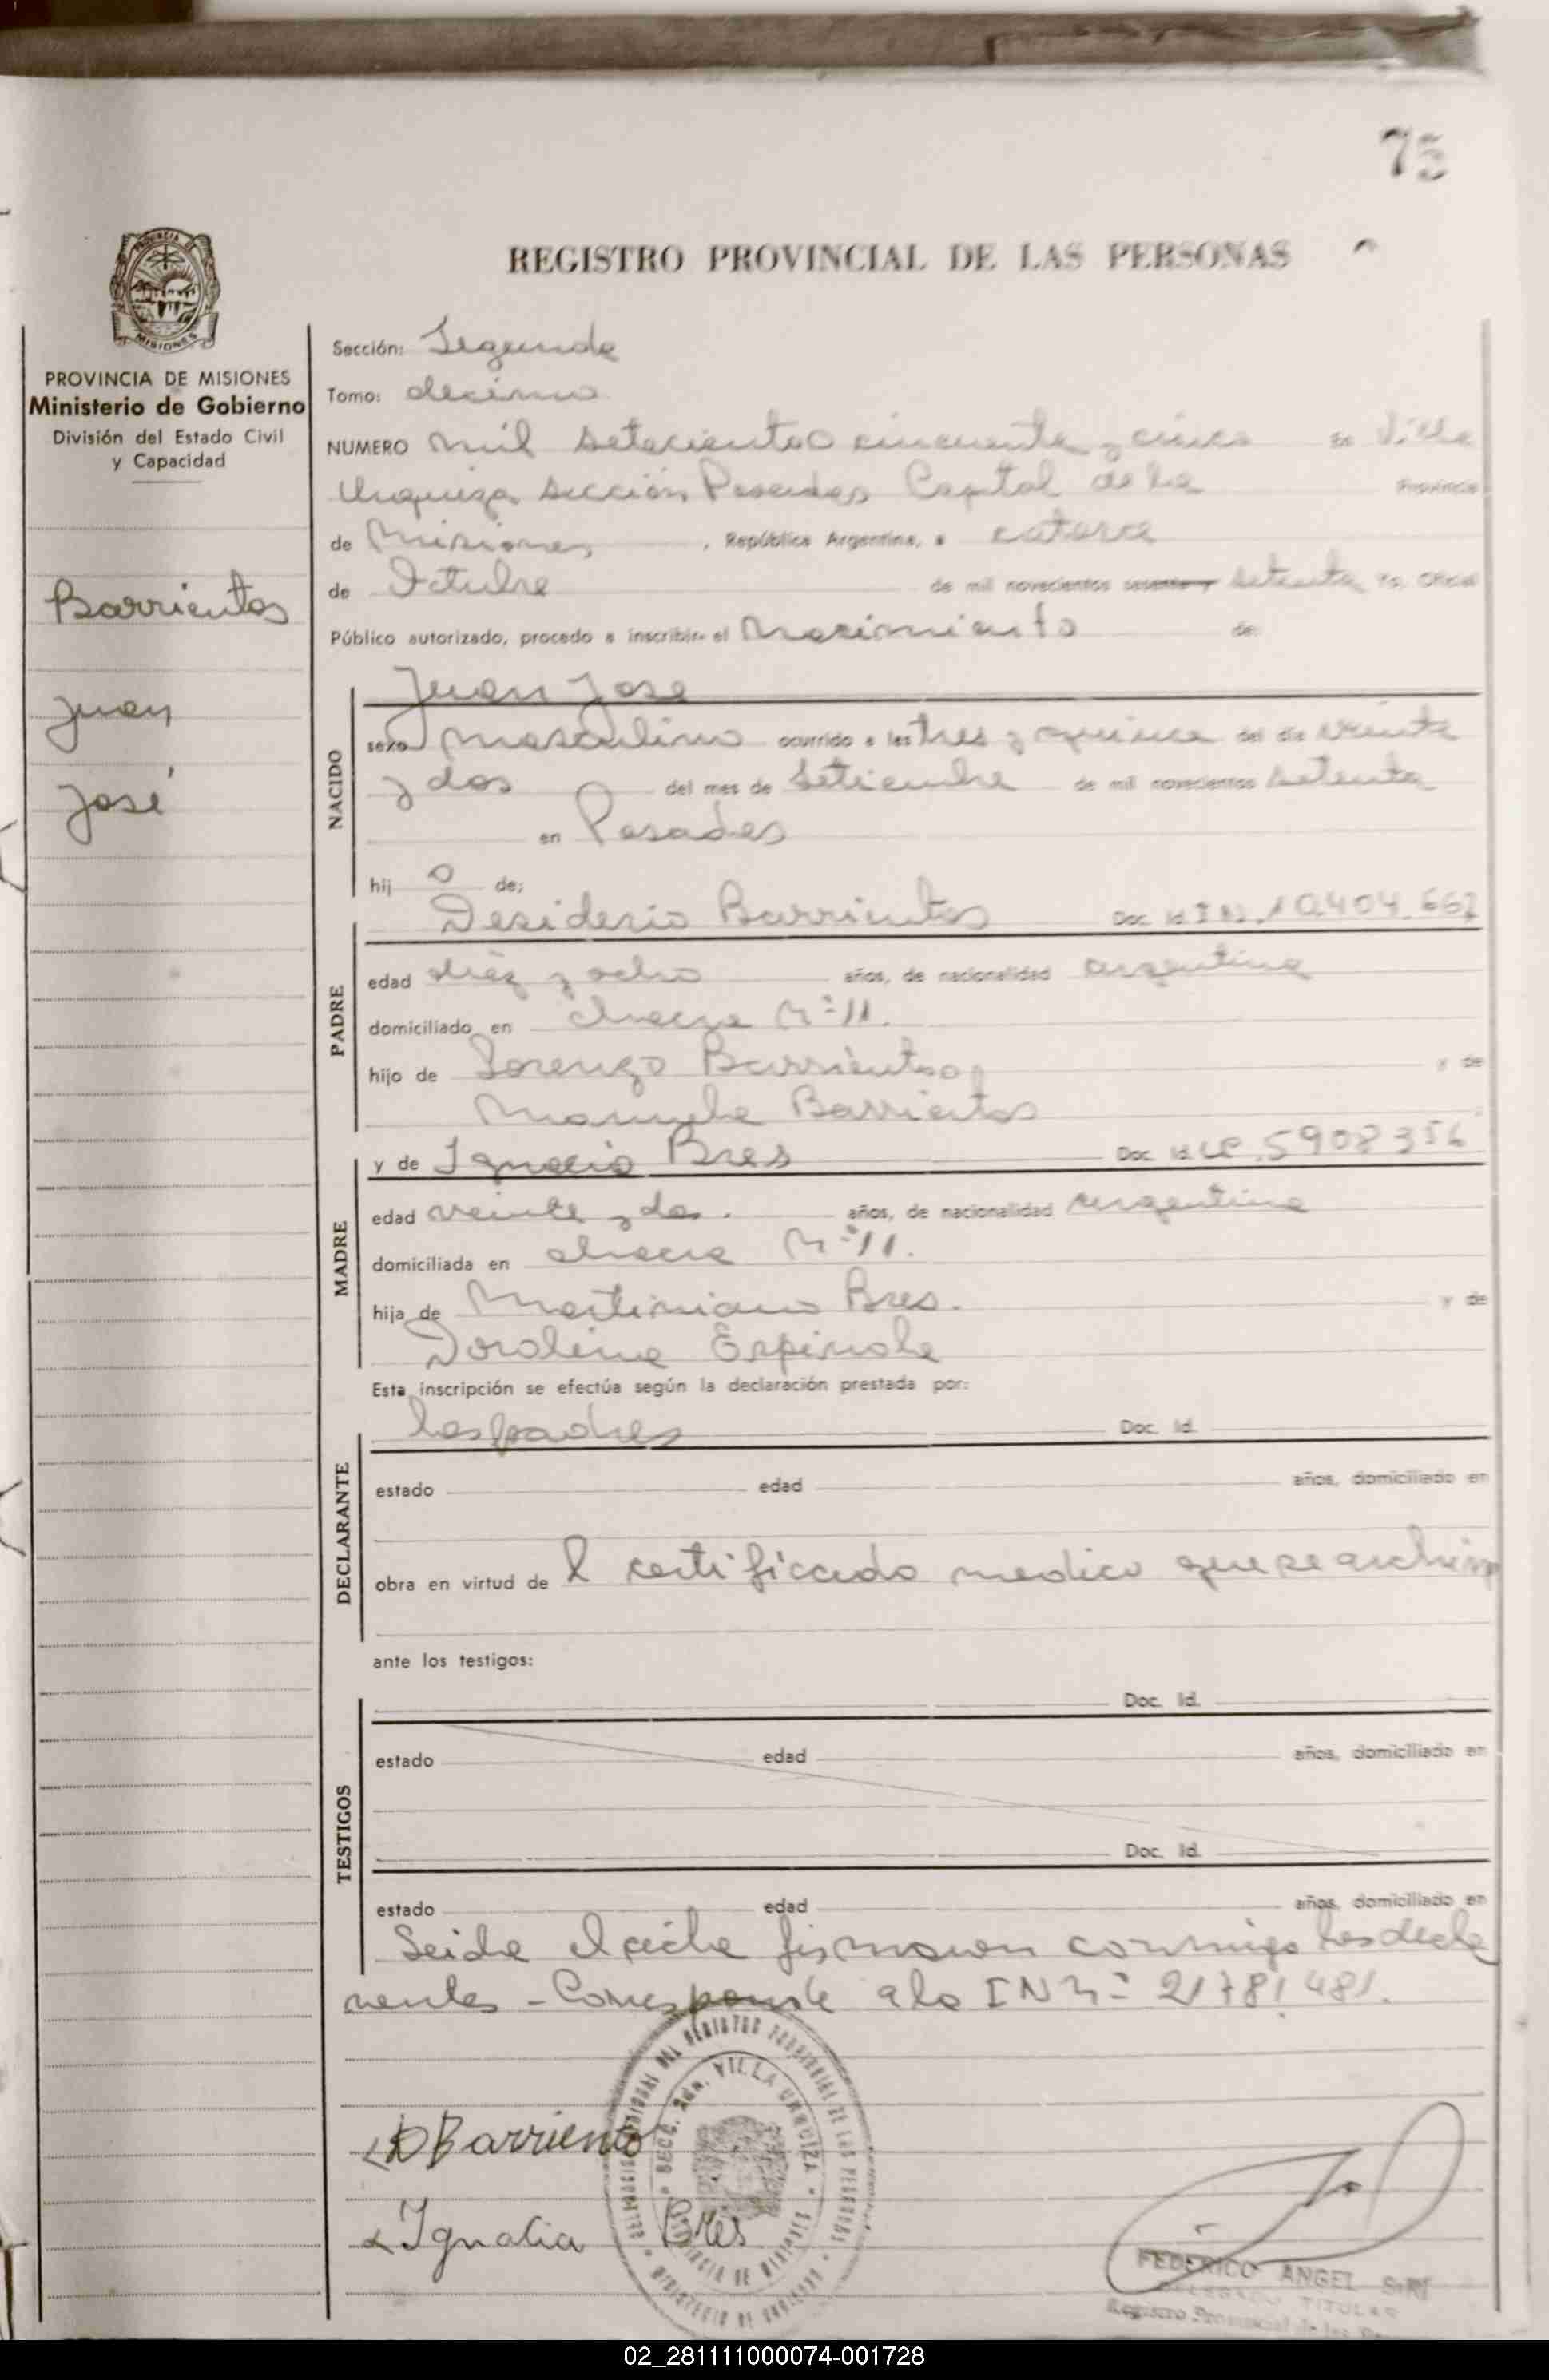 75
REGISTRO PROVINCIAL DE LAS PERSONAS
PROVINCIA DE MISIONES
MISIONES
PROVINCIA DE MISIONES
Ministerio de Gobierno
División del Estado Civil
y Capacidad
Barrientos
Juan
José
Sección: Segunda
Tomo: decimo
NUMERO mil setecientos cincuenta y cinco En Villa
Urquiza sección Posadas Capital de la Provincia
de Misiones, República Argentina, a catorce
de Octubre de mil novecientos sesenta y setenta Yo, Oficial
Público autorizado, procedo a inscribir el Nacimiento de:
NACIDO
Juan Jose
sexo masculino ocurrido a las tres y quince del día veinte
y dos del mes de Setiembre de mil novecientos setenta
en Posadas
hij o de;
PADRE
Desiderio Barrientos Doc. Id. I N. 10.404.667
edad diez y ocho años, de nacionalidad argentina
domiciliado en chacra Nº 11.
hijo de Lorenzo Barrientos y de
Manuela Barrientos
MADRE
y de Ignacia Bres Doc. Id. LC. 5908356
edad veinte y dos. años, de nacionalidad argentina
domiciliada en chacra Nº 11.
hija de Martiniano Bres. y de
Doralina Espinola
Esta inscripción se efectúa según la declaración prestada por:
DECLARANTE
los padres Doc. Id.
estado edad años, domiciliado en
obra en virtud de l certificado medico que se archiva
ante los testigos:
TESTIGOS
Doc. Id.
estado edad años, domiciliado en
Doc. Id.
estado edad años, domiciliado en
Leida el acta firmaron conmigo los decla
rantes - Corresponde a la I N Nº 21781481.
D Barriento
Ignacia Bres
SECC. 2da. VILLA URQUIZA
PROVINCIA DE MISIONES
FEDERICO ANGEL
DELEGADO TITULAR
Registro Provincial de las
02_281111000074-001728